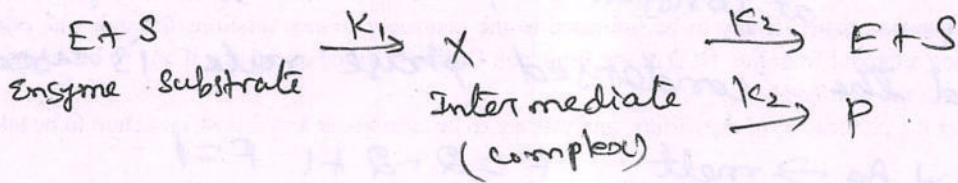 E+S K₁→ X K₂→ E+S
Ensyme Substrate Intermediate K₂→ P
(complex)